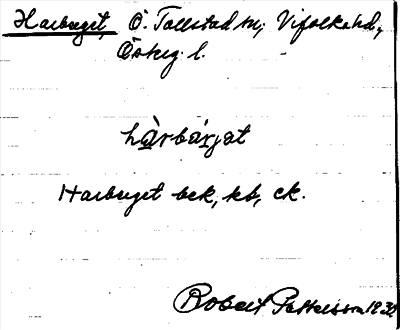 Harberget, Ö. Tollstad sn, Vifolka hd,
Österg. l.
hàrbárjət
Harberget bek, kb, ck.
Robert Pettersson 1932